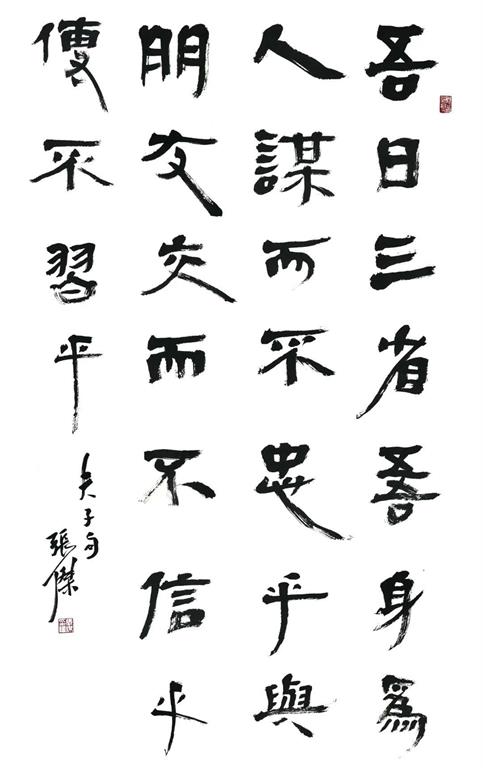 吾日三省吾身爲
人謀而不忠乎與
朋友交而不信乎
傳不習乎
夫子句
張傑